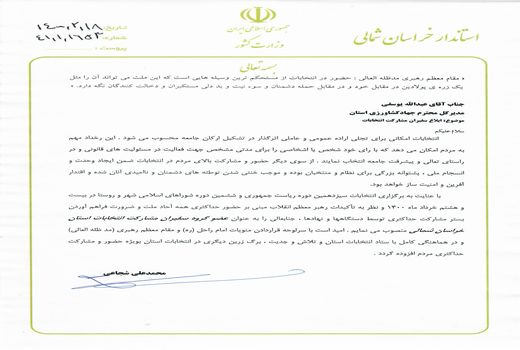 جمهوری اسلامی ایران
وزارت کشور
استاندار خراسان شمالی
تاریخ: ۱۴۰۰,۲,۱۸
شماره: ۴۱,۱,۱۶۵۳
پیوست:
بسمه تعالی
مقام معظم رهبری مدظله العالی : حضور در انتخابات از مستحکم ترین وسیله هایی است که این ملت می تواند آن را مثل
یک زره ی پولادین در مقابل خود و در مقابل حمله دشمنان و سوء نیت و بد دلی مستکبران و دخالت کنندگان نگه دارد.
جناب آقای عبدالله یوسفی
مدیرکل محترم جهادکشاورزی استان
موضوع: ابلاغ سفیران مشارکت انتخابات
سلام علیکم
انتخابات امکانی برای تجلی اراده عمومی و عاملی اثرگذار در تشکیل ارکان جامعه محسوب می شود. این رخداد مهم
به مردم امکان می دهد که با رای خود شخص یا اشخاصی را برای مدتی مشخص جهت فعالیت در مسئولیت های قانونی و در
راستای تعالی و پیشرفت جامعه انتخاب نمایند. از سوی دیگر حضور و مشارکت بالای مردم در انتخابات ضمن ایجاد وحدت و
انسجام ملی ، پشتوانه بزرگی برای نظام و منتخبان بوده و موجب خنثی شدن توطئه های دشمنان و ناامیدی آنان شده و اقتدار
آفرین و امنیت ساز خواهد بود.
با عنایت به برگزاری انتخابات سیزدهمین دوره ریاست جمهوری و ششمین دوره شوراهای اسلامی شهر و روستا در بیست
و هشتم خرداد ماه ۱۴۰۰ و نظر به تأکیدات رهبر معظم انقلاب مبنی بر حضور حداکثری همه آحاد ملت و ضرورت فراهم آوردن
بستر مشارکت حداکثری توسط دستگاهها و نهادها ، جنابعالی را به عنوان عضو گروه سفیران مشارکت انتخابات استان
خراسان شمالی منصوب می نمایم. امید است با سرلوحه قراردادن منویات امام راحل (ره) و مقام معظم رهبری (مد ظله العالی) و
در هماهنگی کامل با ستاد انتخابات استان و تلاش و جدیت ، برگ زرین دیگری در انتخابات استان بویژه حضور و مشارکت
حداکثری مردم افزوده گردد .
محمدعلی شجاعی